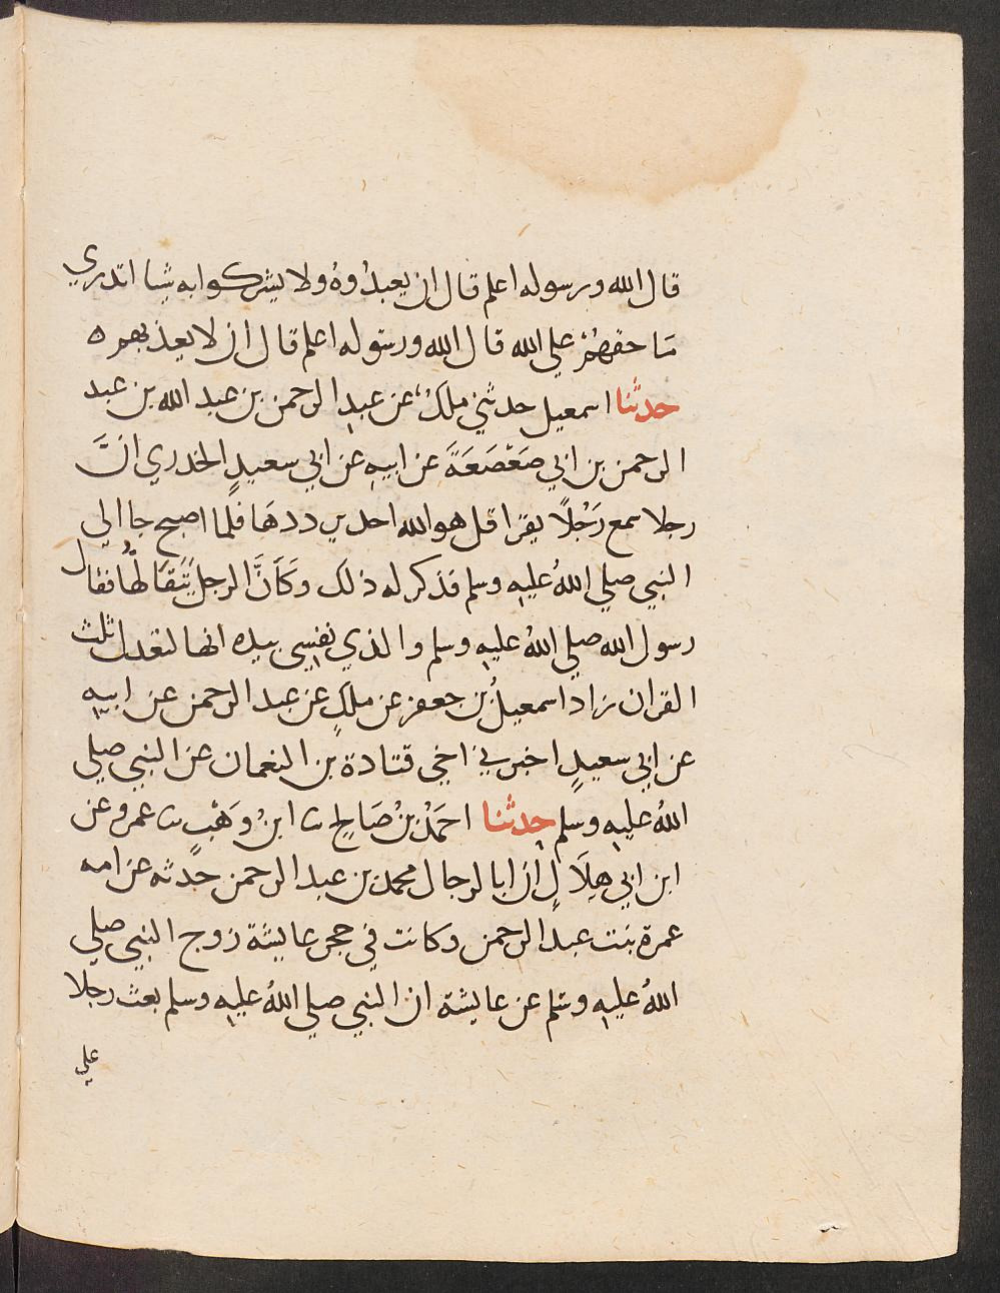 قال الله ورسوله اعلم قال ان يعبدُوهُ ولا يشركوا به شيا اتدري
مَا حقهُمْ علي الله قال الله ورسوله اعلم قال ان لا يعذبهم ه
حدثنا اسمعيل حدثني ملكٌ عن عبدِ الرحمن بن عبد الله بن عبد
الرحمن بن ابي صَعْصَعَةَ عن ابيهِ عن ابي سعيدٍ الخدري انَّ
رجلا سمع رَجُلًا يقرا قل هو الله احد يرددهَا فلما اصبح جا الي
النبي صلي اللهُ عليهِ وسلم فذكر له ذلك وَكَاَنَّ الرجل يَتَقَالُّهَا فقال
رسول الله صلي اللهُ عليهِ وسلم والذي نفسِي بيده انها لتعدل ثلث
القران زاد اسمعيلُ بن جعفر عن ملكٍ عن عبد الرحمن عن ابيهِ
عن ابي سعيدٍ اخبرني اخي قتادة بن النعمان عن النبي صلي
اللهُ عليهِ وسلم حدثنا احمَدُ بنُ صَالِحٍ ثنا ابنُ وَهْبٍ ثنا عمرو عن
ابن ابي هِلَالٍ ان ابا الرجال محمد بن عبد الرحمن حَدثه عن امه
عمرة بنت عبد الرحمن وكانت في حجر عايشة زوج النبي صلي
اللهُ عليهِ وسَلم عن عايشة ان النبي صلي اللهُ عليهِ وسلم بعث رجلا
علي